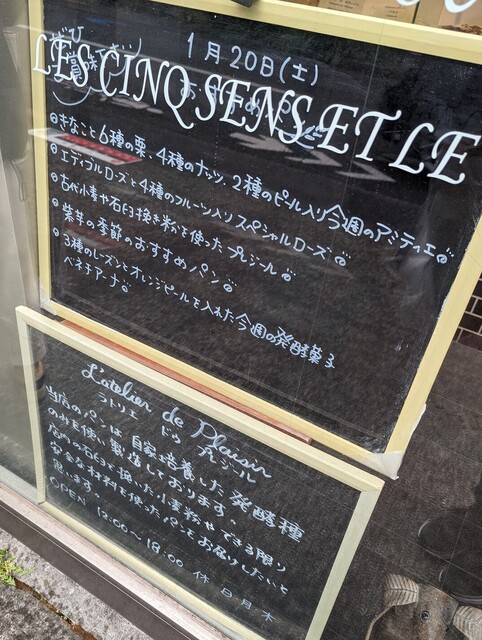 1月20日(土)
LES CINQ SENS ET LE
きなこと6種の栗、4種のナッツ、2種のピール入り今週のアミティエ
エディブルローズと4種のフルーツ入りスペシャルローズ
古代小麦や石臼挽き粉を使ったプレジール
紫芋の季節のおすすめパン
3種のレーズンとオレンジピールを入れた今週の発酵菓子
ベネチアーナ
L'atelier de Plaisir
ラトリエ ドゥ プレジール
当店のパンは自家培養した発酵種
のみを使い製造しております。
店内の石臼で挽いた小麦粉やできる限り
安全な材料を使ったパンをお届けしたいと
思います。
OPEN 12:00〜18:00 休 日 月 木